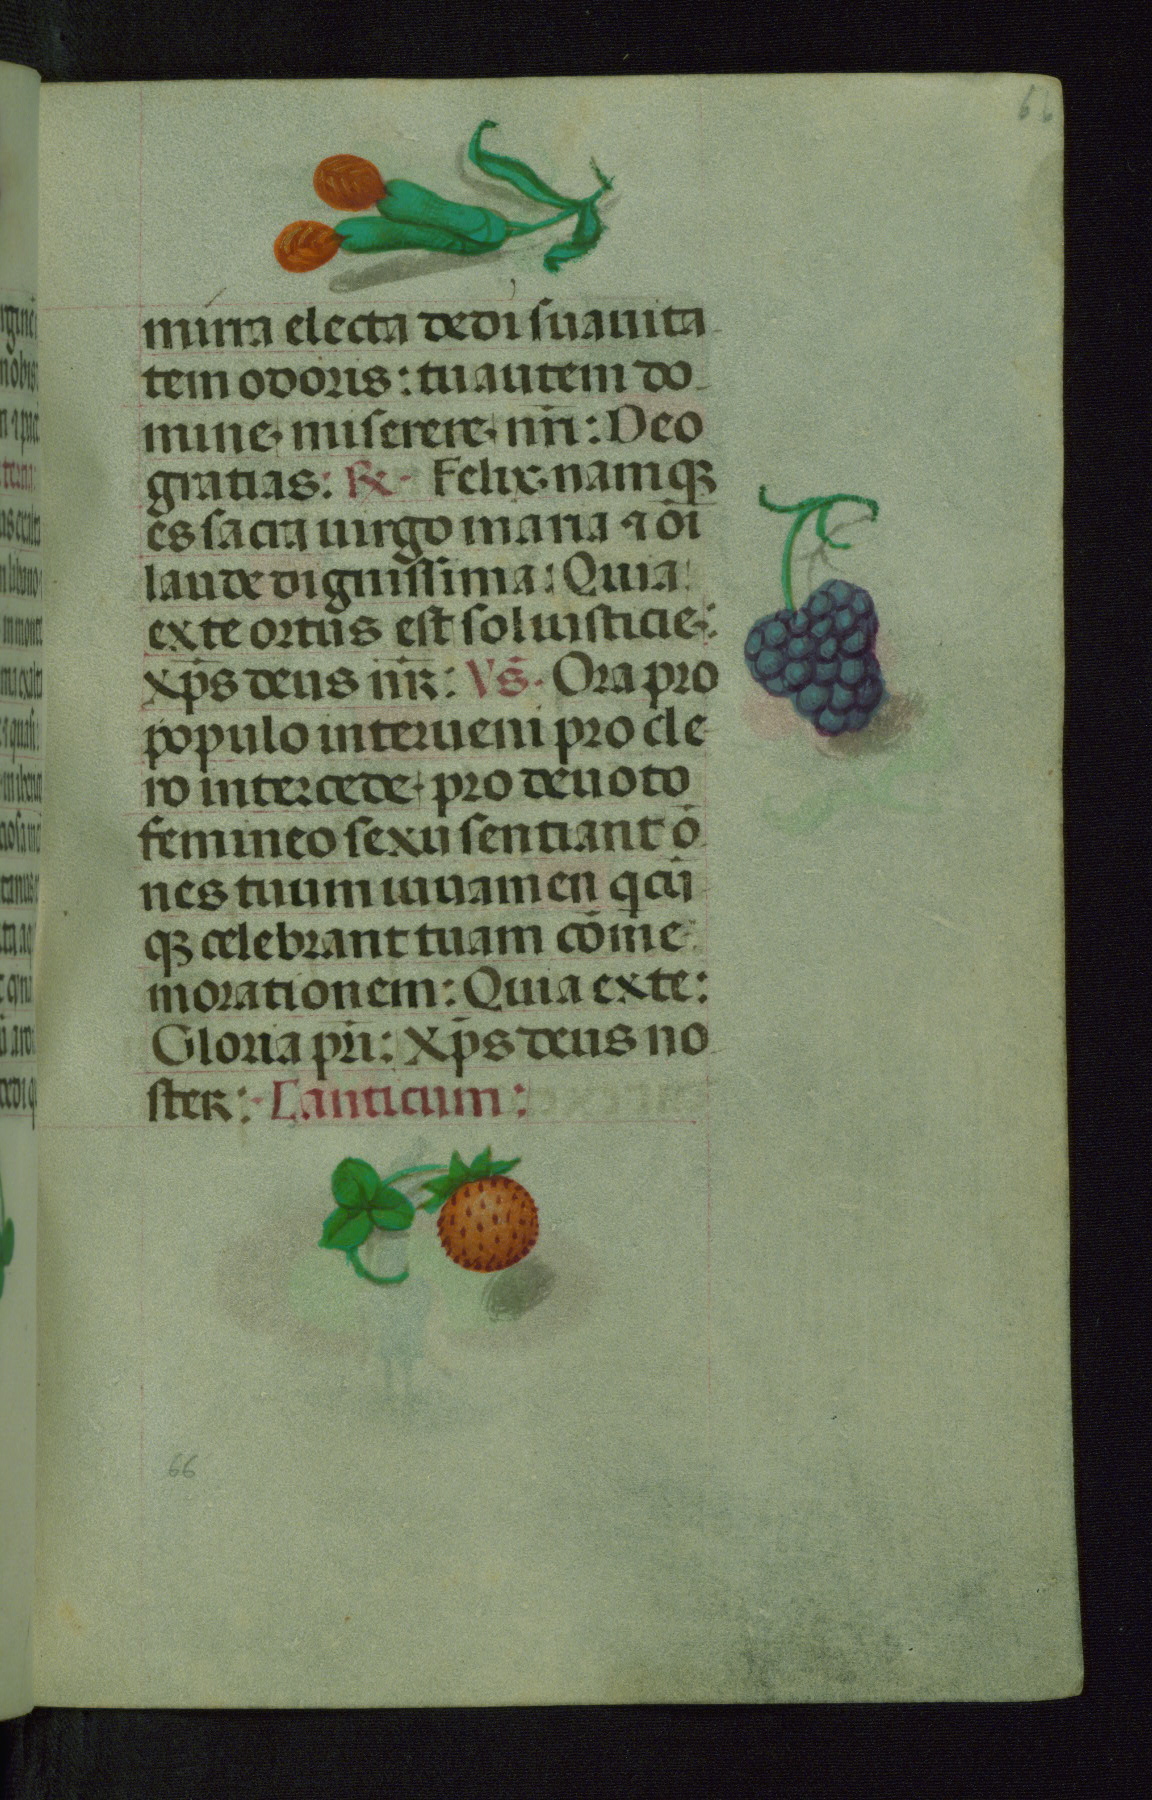 66
mirra electa dedi suauita
tem odoris: tu autem do
mine miserere nr̄i: Deo
gratias: ℟ Felix namqꝫ
es sacra uirgo maria ⁊ oī
laude dignissima: Quia
ex te ortus est̄ sol iusticie:
xp̄s deus nr̄: Vs̄. Ora pro
populo interueni pro cle
ro intercede pro deuoto
femineo sexu sentiant ō
nes tuum iuuamen qcū
qꝫ celebrant tuam cōme
morationem: Quia ex te:
Gloria pr̄i: Xp̄s deus no
ster: Canticum:
66